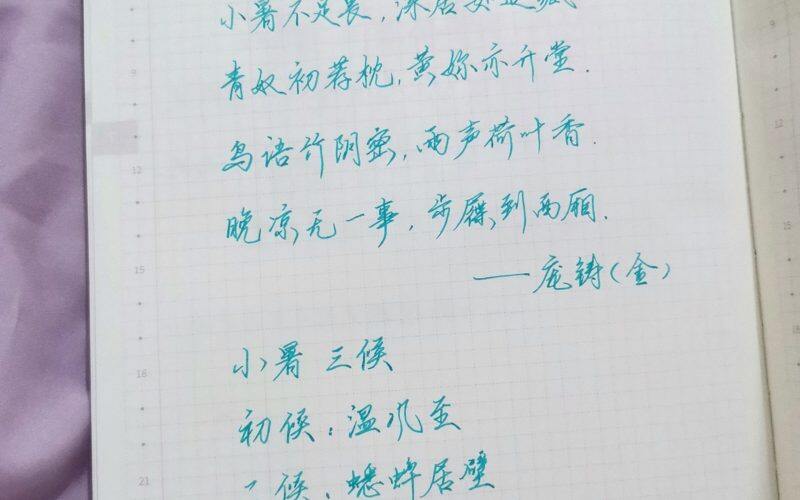 小暑不足畏，深居如退藏
9
青奴初荐枕，黄妳亦升堂.
12
鸟语竹阴密，雨声荷叶香.
晚凉无一事，步屧到西厢.
15
——庞铸（金）
18
小暑 三候
初候：温风至
21
二候：蟋蟀居壁